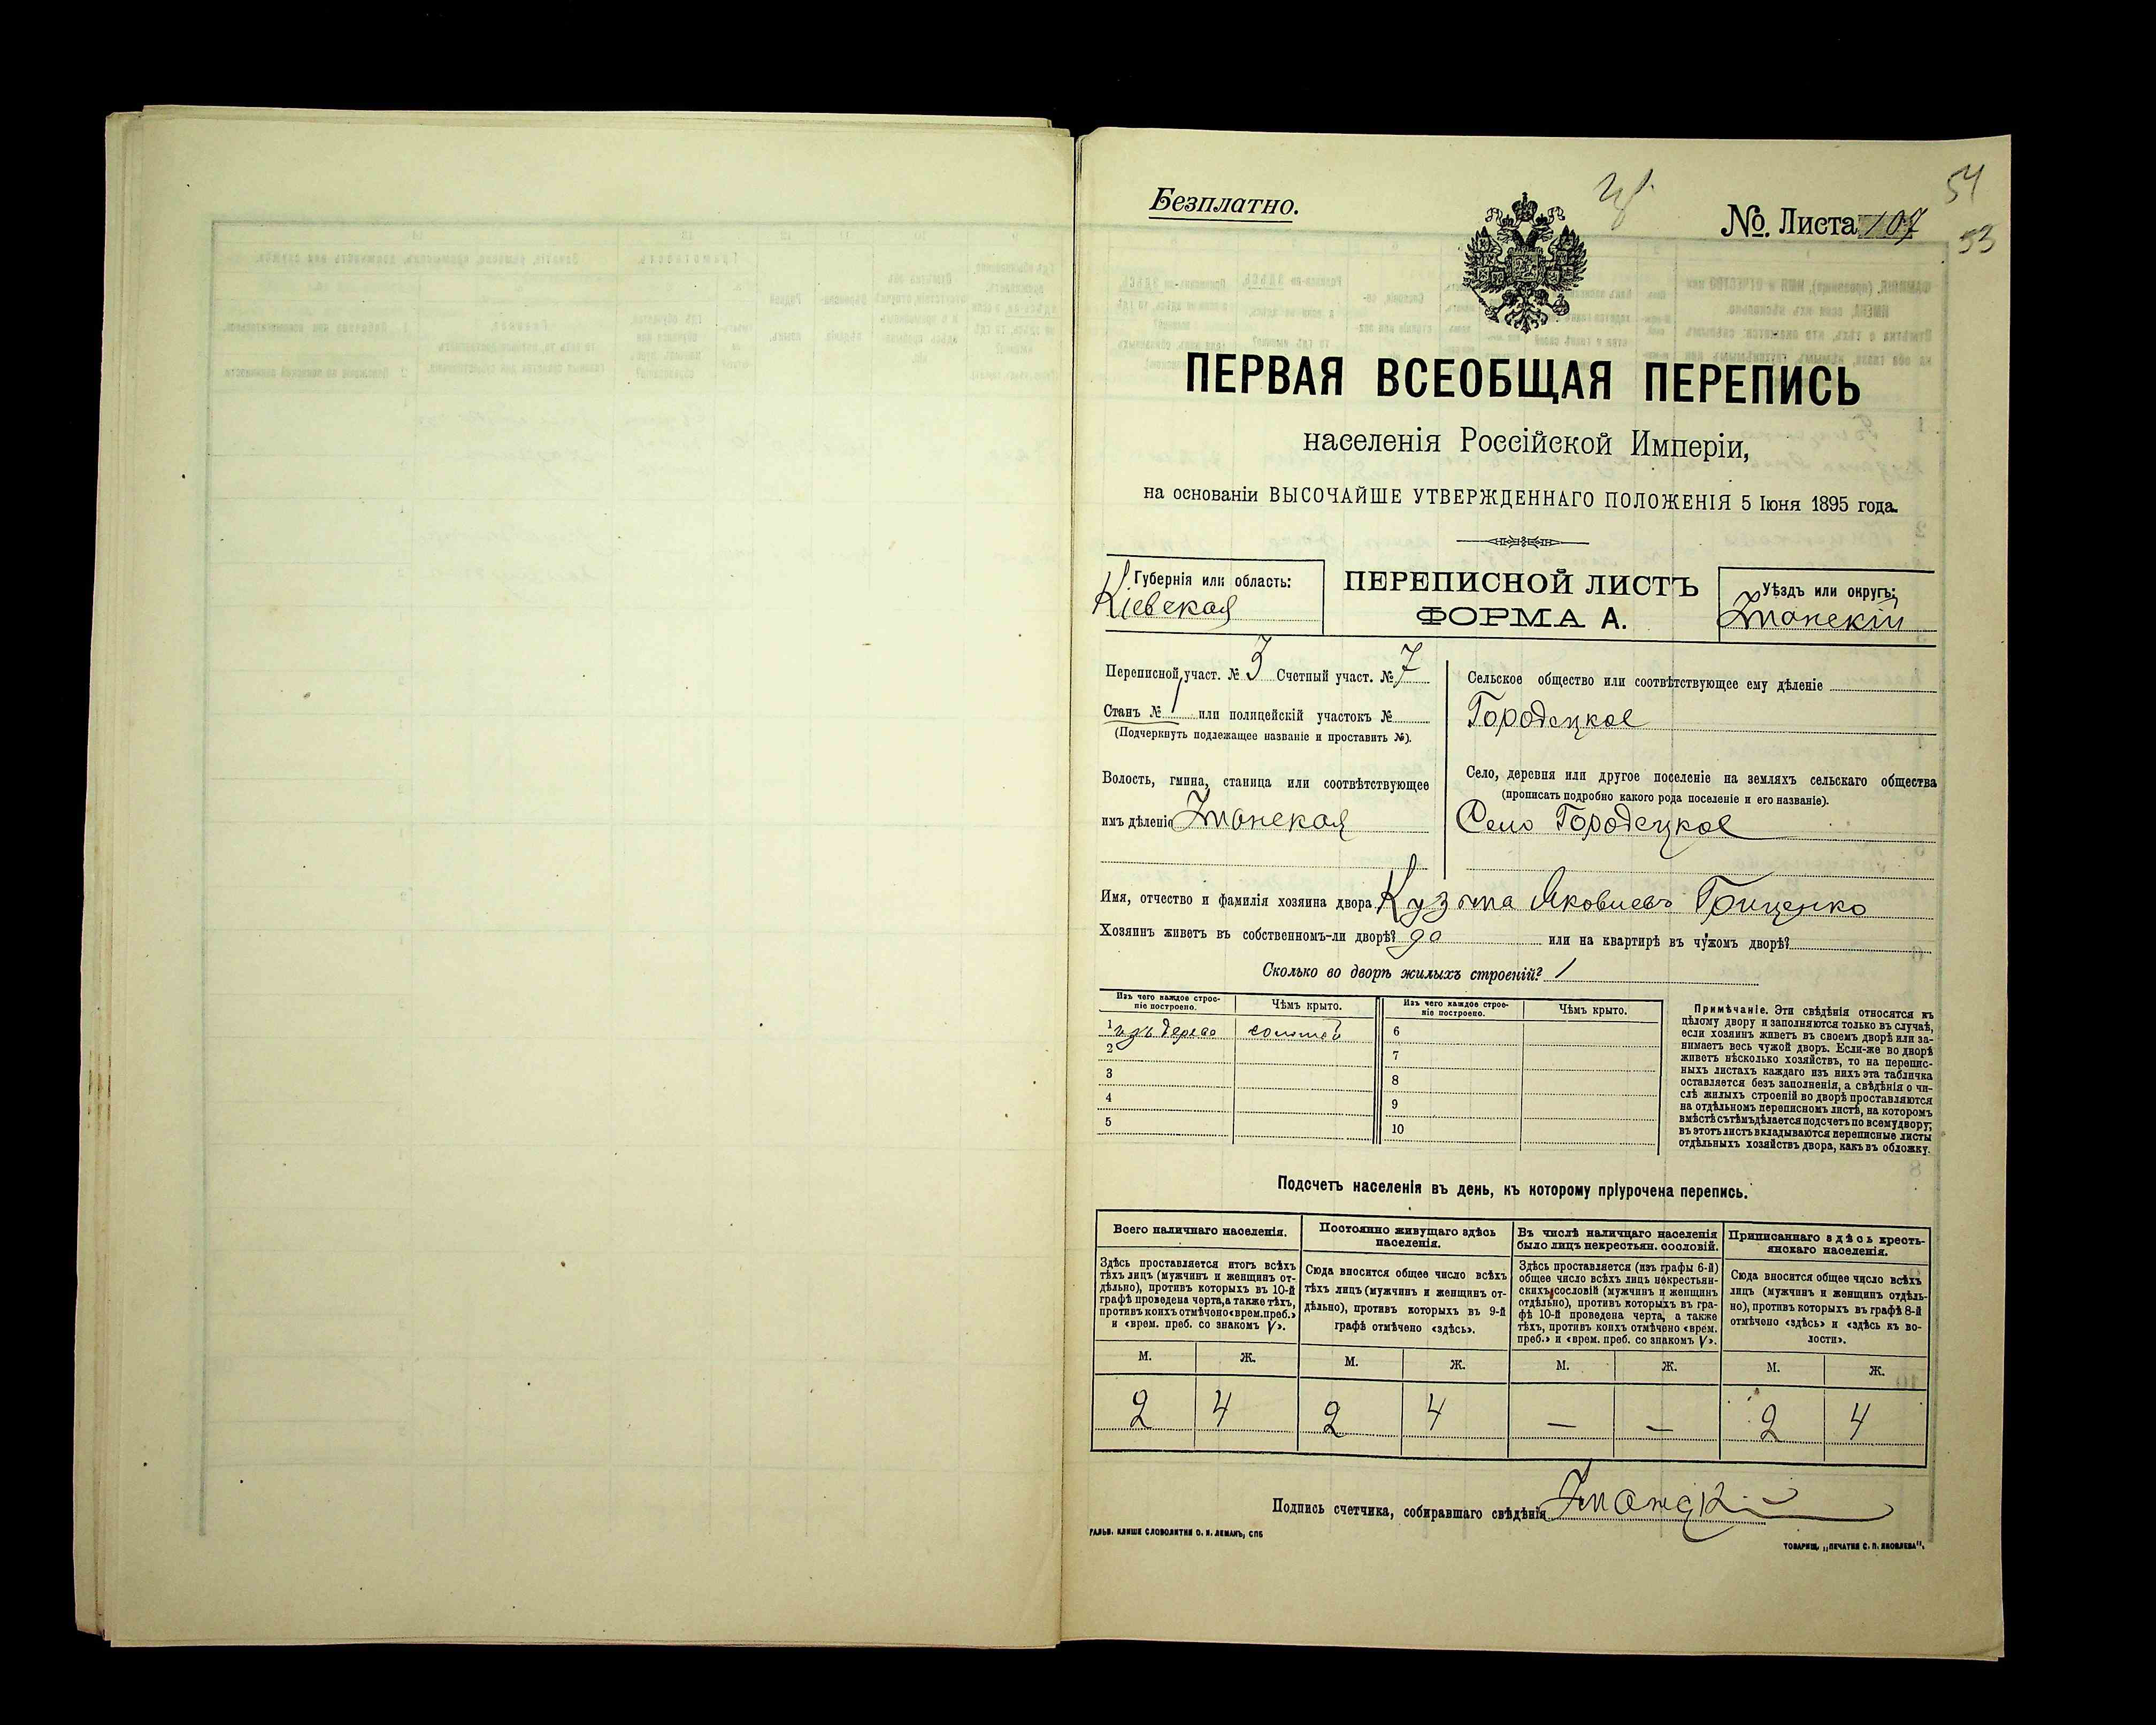 54
Безплатно.
№. Листа 107
53
ПЕРВАЯ ВСЕОБЩАЯ ПЕРЕПИСЬ
населенія Россійской Имперіи,
на основаніи ВЫСОЧАЙШЕ УТВЕРЖДЕННАГО ПОЛОЖЕНІЯ 5 Іюня 1895 года.
Губернія или область:
Кіевская
ПЕРЕПИСНОЙ ЛИСТЪ
ФОРМА А.
Уѣздъ или округъ:
Уманскій
Переписной участ. № 3 Счетный участ. № 7
Станъ № 1 или полицейскій участокъ №
(Подчеркнуть подлежащее названіе и проставить №).
Волость, гмина, станица или соотвѣтствующее
имъ дѣленіе Уманская
Сельское общество или соотвѣтствующее ему дѣленіе
Городецкое
Село, деревня или другое поселеніе на земляхъ сельскаго общества
(прописать подробно какого рода поселеніе и его названіе).
Село Городецкое
Имя, отчество и фамилія хозяина двора Кузьма Яковлевъ Гриценко
Хозяинъ живетъ въ собственномъ-ли дворѣ? да или на квартирѣ въ чужомъ дворѣ?
Сколько во дворѣ жилыхъ строеній? 1
Изъ чего каждое строе-
ніе построено.
Чѣмъ крыто.
Изъ чего каждое строе-
ніе построено.
Чѣмъ крыто.
1 изъ дерева
6
2
7
3
8
4
9
5
10
Примѣчаніе. Эти свѣдѣнія относятся къ
цѣлому двору и заполняются только въ случаѣ,
если хозяинъ живетъ въ своемъ дворѣ или за-
нимаетъ весь чужой дворъ. Если-же во дворѣ
живетъ нѣсколько хозяйствъ, то на перепис-
ныхъ листахъ каждаго изъ нихъ эта табличка
оставляется безъ заполненія, а свѣдѣнія о чи-
слѣ жилыхъ строеній во дворѣ проставляются
на отдѣльномъ переписномъ листѣ, на которомъ
вмѣстѣ съ тѣмъ дѣлается подсчетъ по всему двору;
въ этотъ листъ вкладываются переписные листы
отдѣльныхъ хозяйствъ двора, какъ въ обложку.
Подсчетъ населенія въ день, къ которому пріурочена перепись.
Всего наличнаго населенія.
Здѣсь проставляется итогъ всѣхъ
тѣхъ лицъ (мужчинъ и женщинъ от-
дѣльно), противъ которыхъ въ 10-й
графѣ проведена черта, а также тѣхъ,
противъ коихъ отмѣчено «врем. преб.»
и «врем. преб. со знакомъ V».
Постоянно живущаго здѣсь
населенія.
Сюда вносится общее число всѣхъ
тѣхъ лицъ (мужчинъ и женщинъ от-
дѣльно), противъ которыхъ въ 9-й
графѣ отмѣчено «здѣсь».
Въ числѣ наличнаго населенія
было лицъ некрестьян. сословій.
Здѣсь проставляется (изъ графы 6-й)
общее число всѣхъ лицъ некрестьян-
скихъ сословій (мужчинъ и женщинъ
отдѣльно), противъ которыхъ въ гра-
фѣ 10-й проведена черта, а также
тѣхъ, противъ коихъ отмѣчено «врем.
преб.» и «врем. преб. со знакомъ V».
Приписаннаго здѣсь кресть-
янскаго населенія.
Сюда вносится общее число всѣхъ
лицъ (мужчинъ и женщинъ отдѣль-
но), противъ которыхъ въ графѣ 8-й
отмѣчено «здѣсь» и «здѣсь къ во-
лости».
М. Ж. М. Ж. М. Ж. М. Ж.
2 4 2 4 — — 2 4
Подпись счетчика, собиравшаго свѣдѣнія
ГАЛЬВ. КЛИШЕ СЛОВОЛИТНИ О. И. ЛЕМАНЪ, СПБ
ТОВАРИЩ. „ПЕЧАТНЯ С. П. ЯКОВЛЕВА".